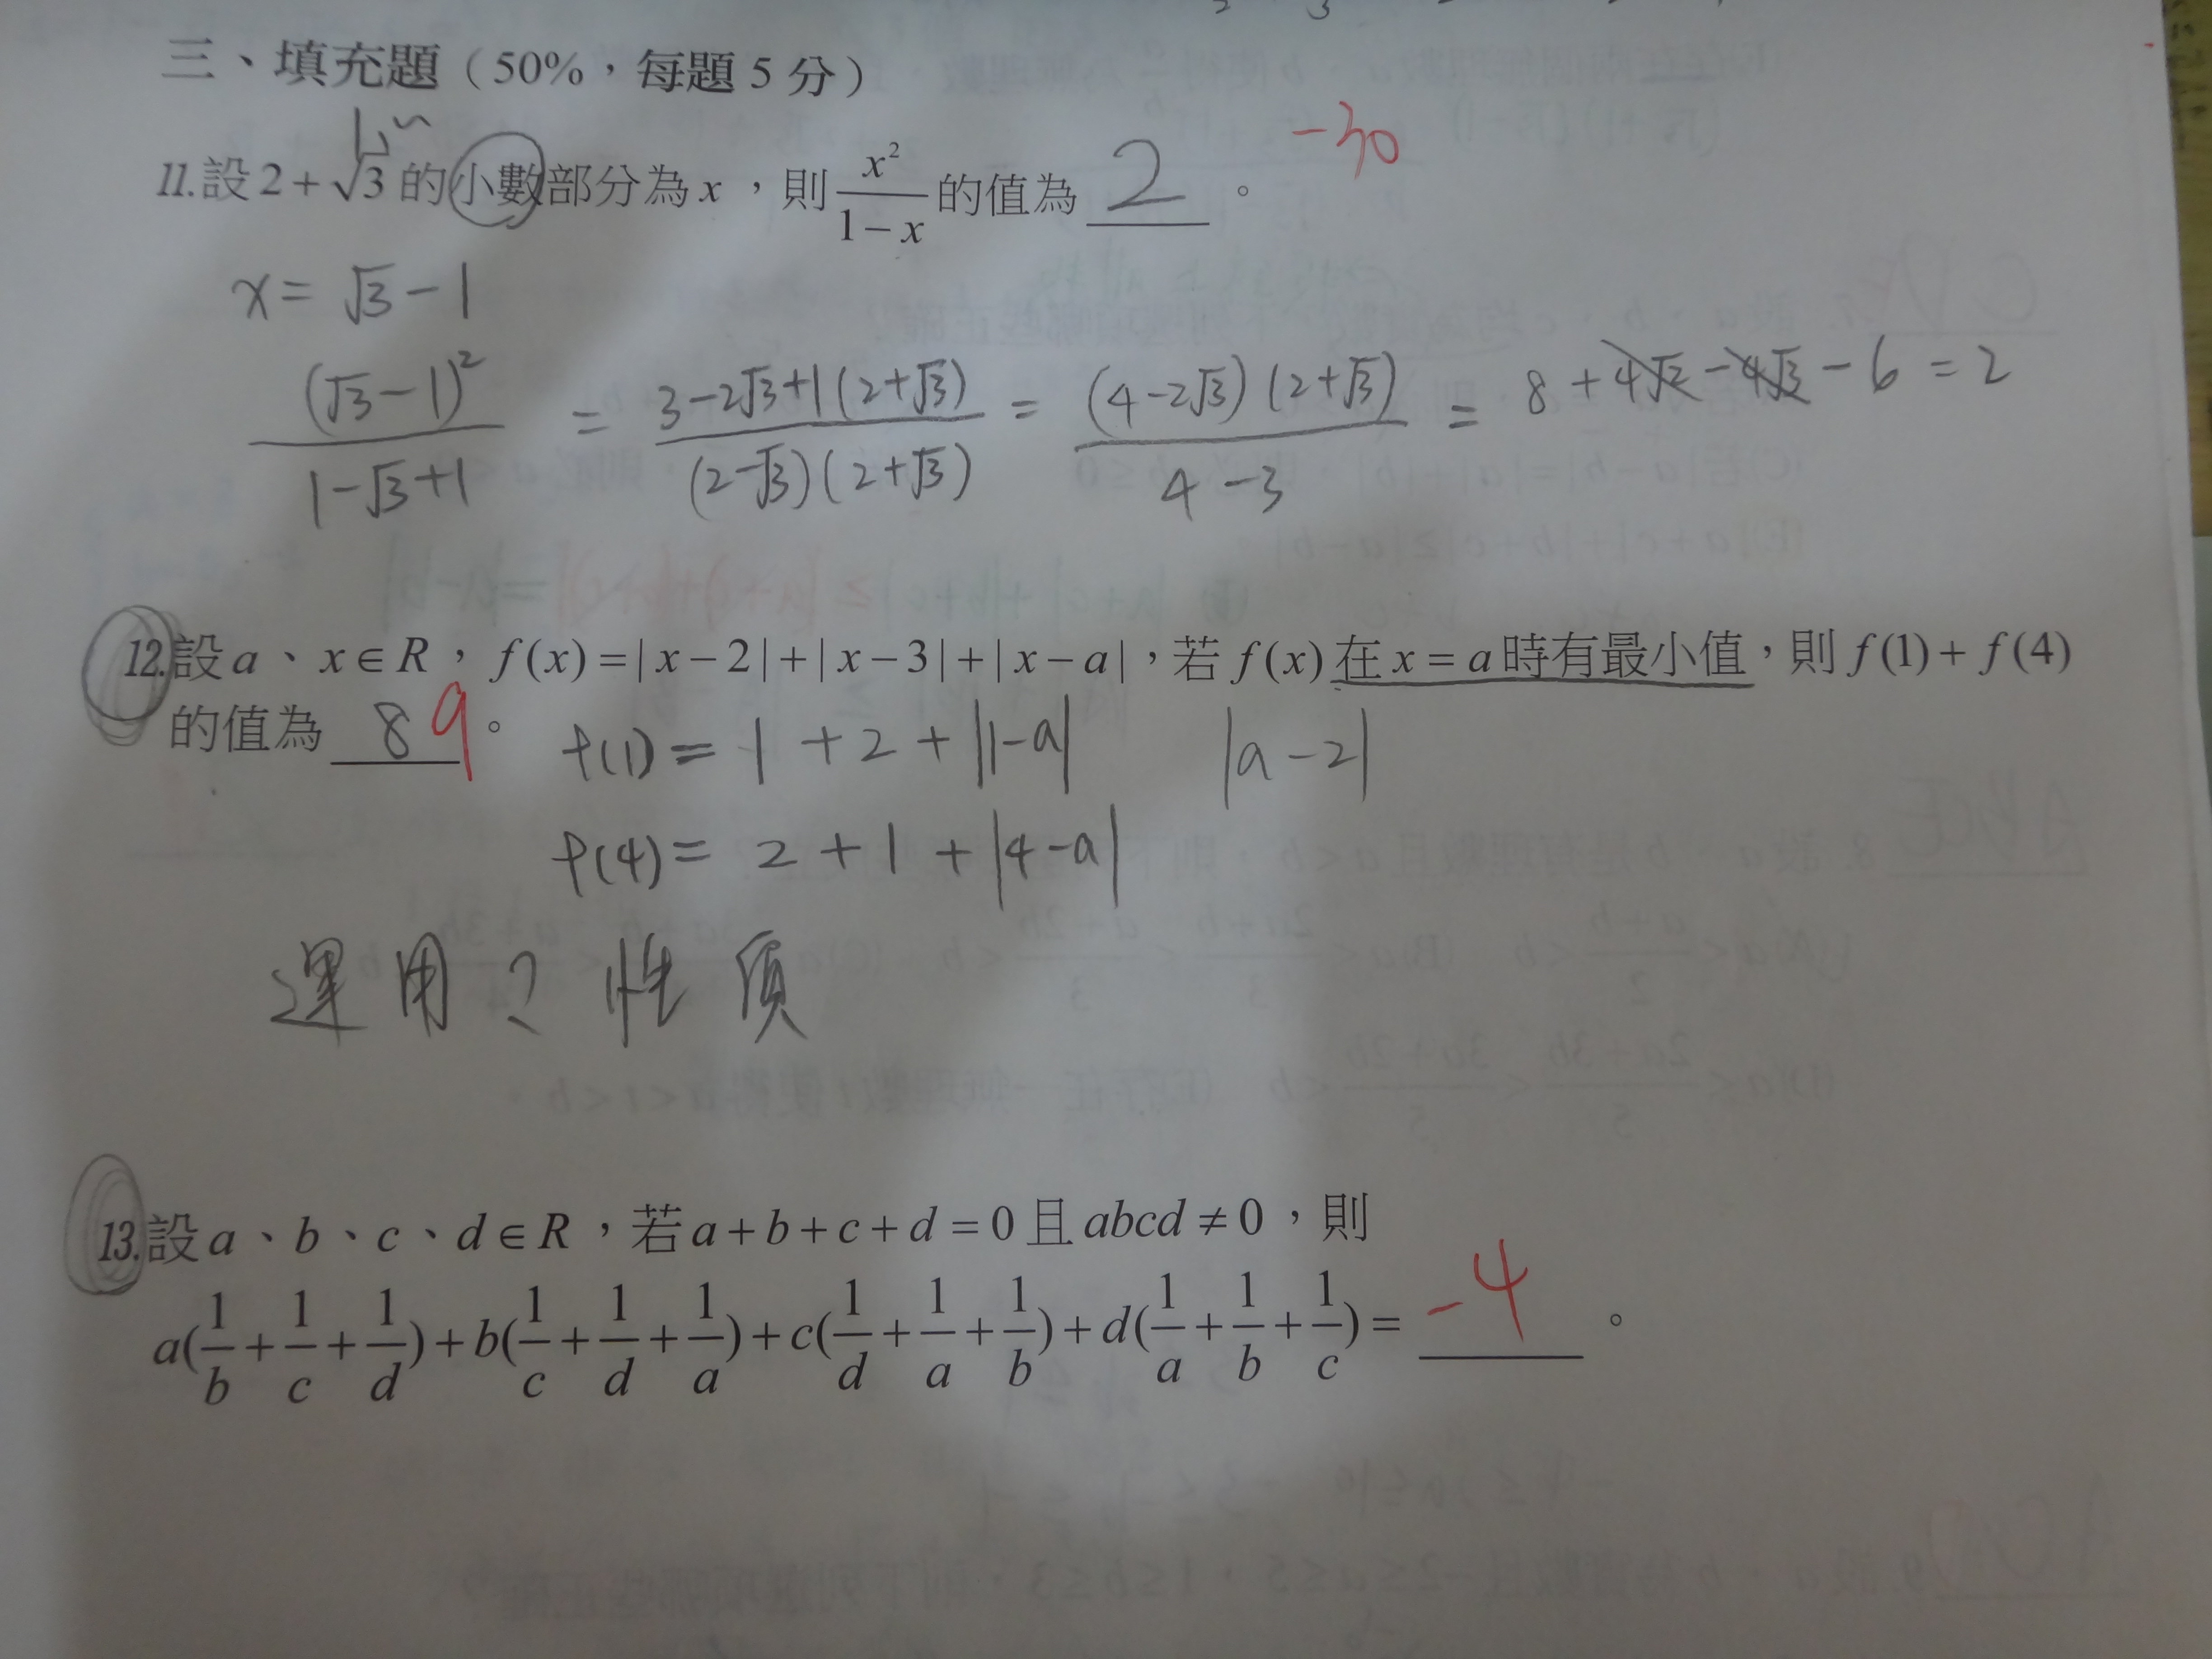 三、填充題（50%，每題 5 分）
11.設 2 + √3 的小數部分為 x ，則 x²/(1 − x) 的值為 2 。 −30
x = √3 − 1
(√3 − 1)²/(1 − √3 + 1) = 3 − 2√3 + 1 (2 + √3)/(2 − √3)(2 + √3) = (4 − 2√3)(2 + √3)/(4 − 3) = 8 + 4√3 − 4√3 − 6 = 2
12.設 a 、 x ∈ R ， f(x) = | x − 2 | + | x − 3 | + | x − a | ，若 f(x) 在 x = a 時有最小值，則 f(1) + f(4)
的值為 8 9 。
f(1) = 1 + 2 + |1 − a| |a − 2|
f(4) = 2 + 1 + |4 − a|
運用？性質
13.設 a 、 b 、 c 、 d ∈ R ，若 a + b + c + d = 0 且 abcd ≠ 0 ，則
a(1/b + 1/c + 1/d) + b(1/c + 1/d + 1/a) + c(1/d + 1/a + 1/b) + d(1/a + 1/b + 1/c) = −4 。